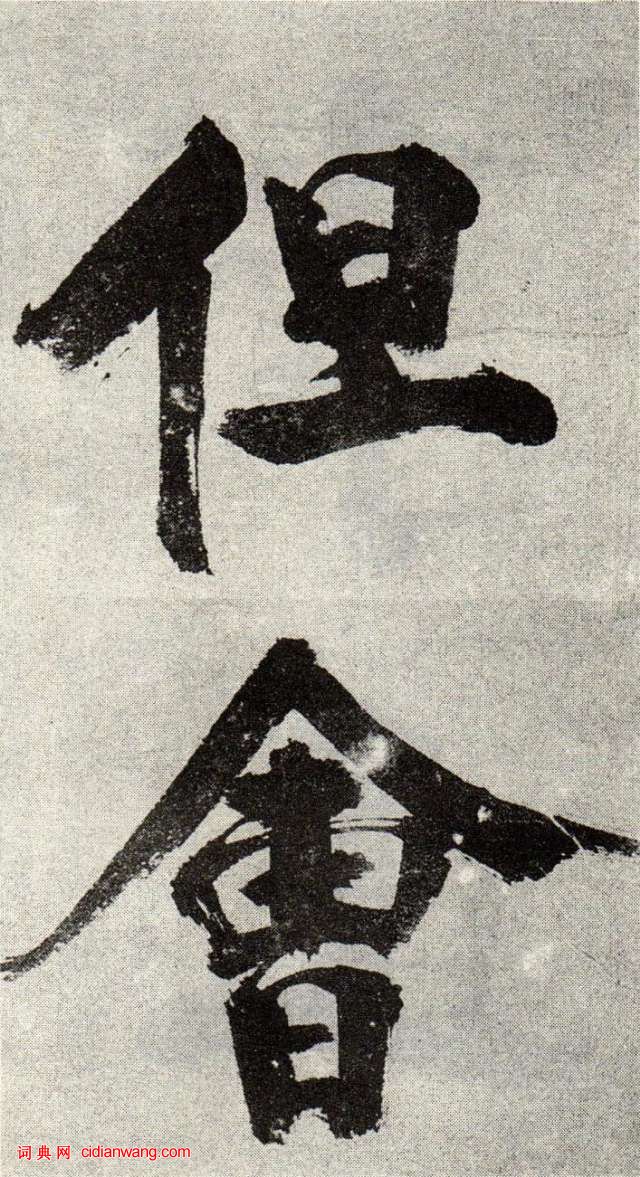 但
會
词典网 cidianwang.com